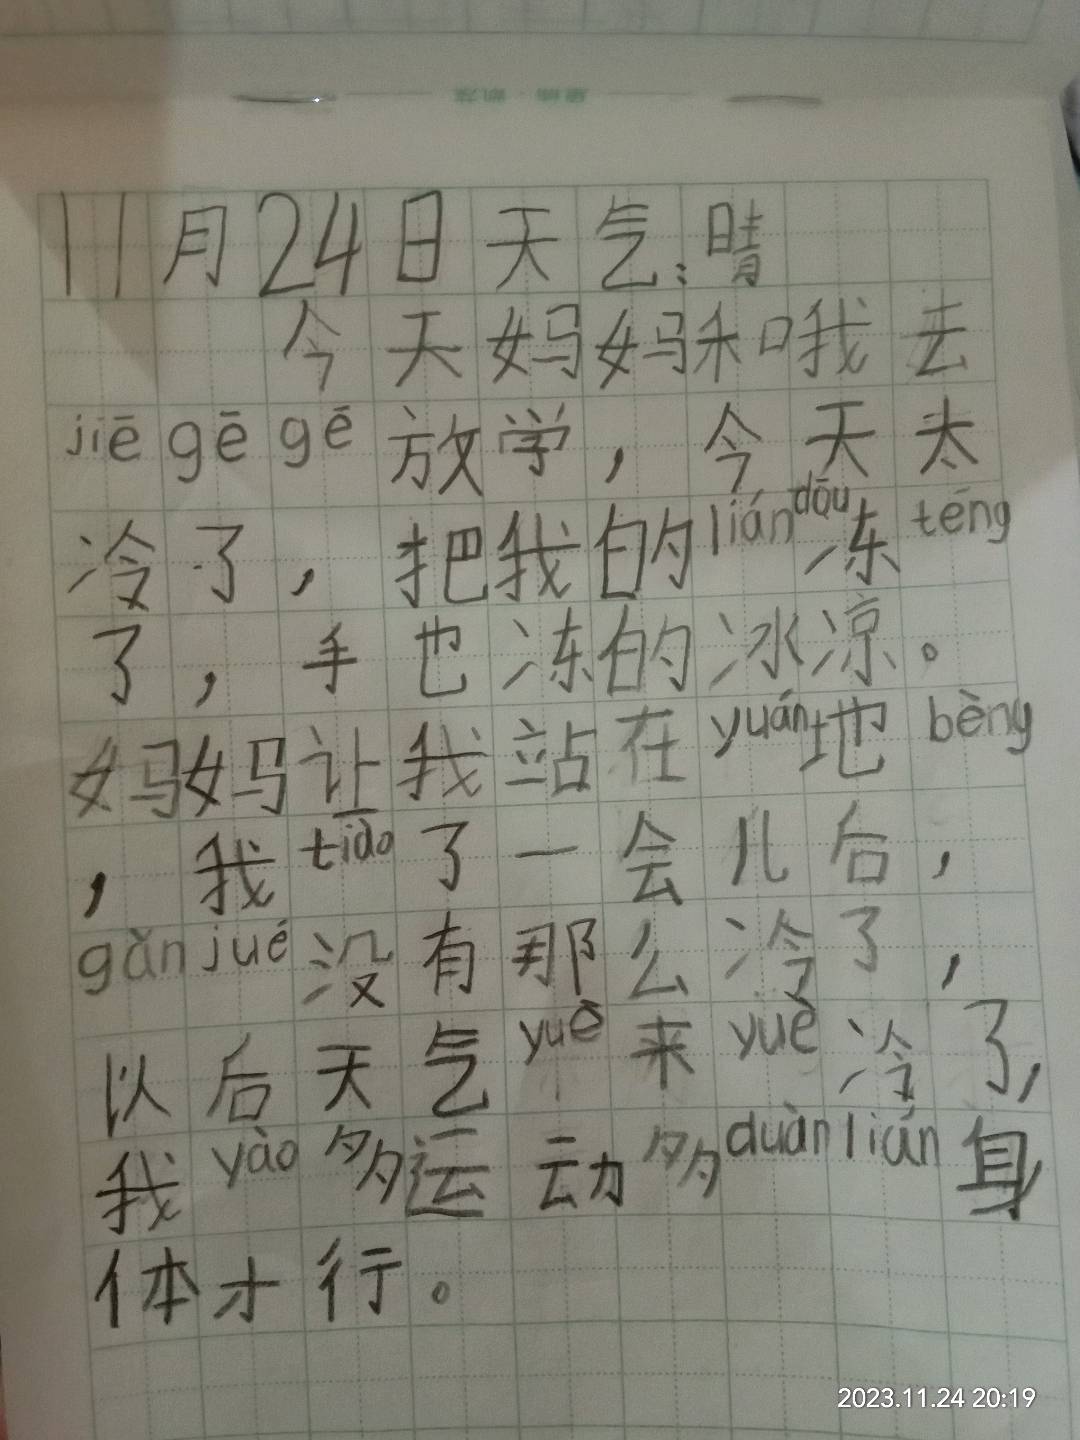 11月24日天气:晴
今天妈妈和哦去
jiē gē gē 放学，今天太
冷了，把我的lián dōu 冻 téng
了，手也冻的冰凉。
妈妈让我站在 yuán 地 bèng
，我 tiào 了一会儿后，
gǎn jué 没有那么冷了，
以后天气 yuè 来 yuè 冷了,
我 yào 多运动多 duàn lián 身
体才行。
2023.11.24 20:19